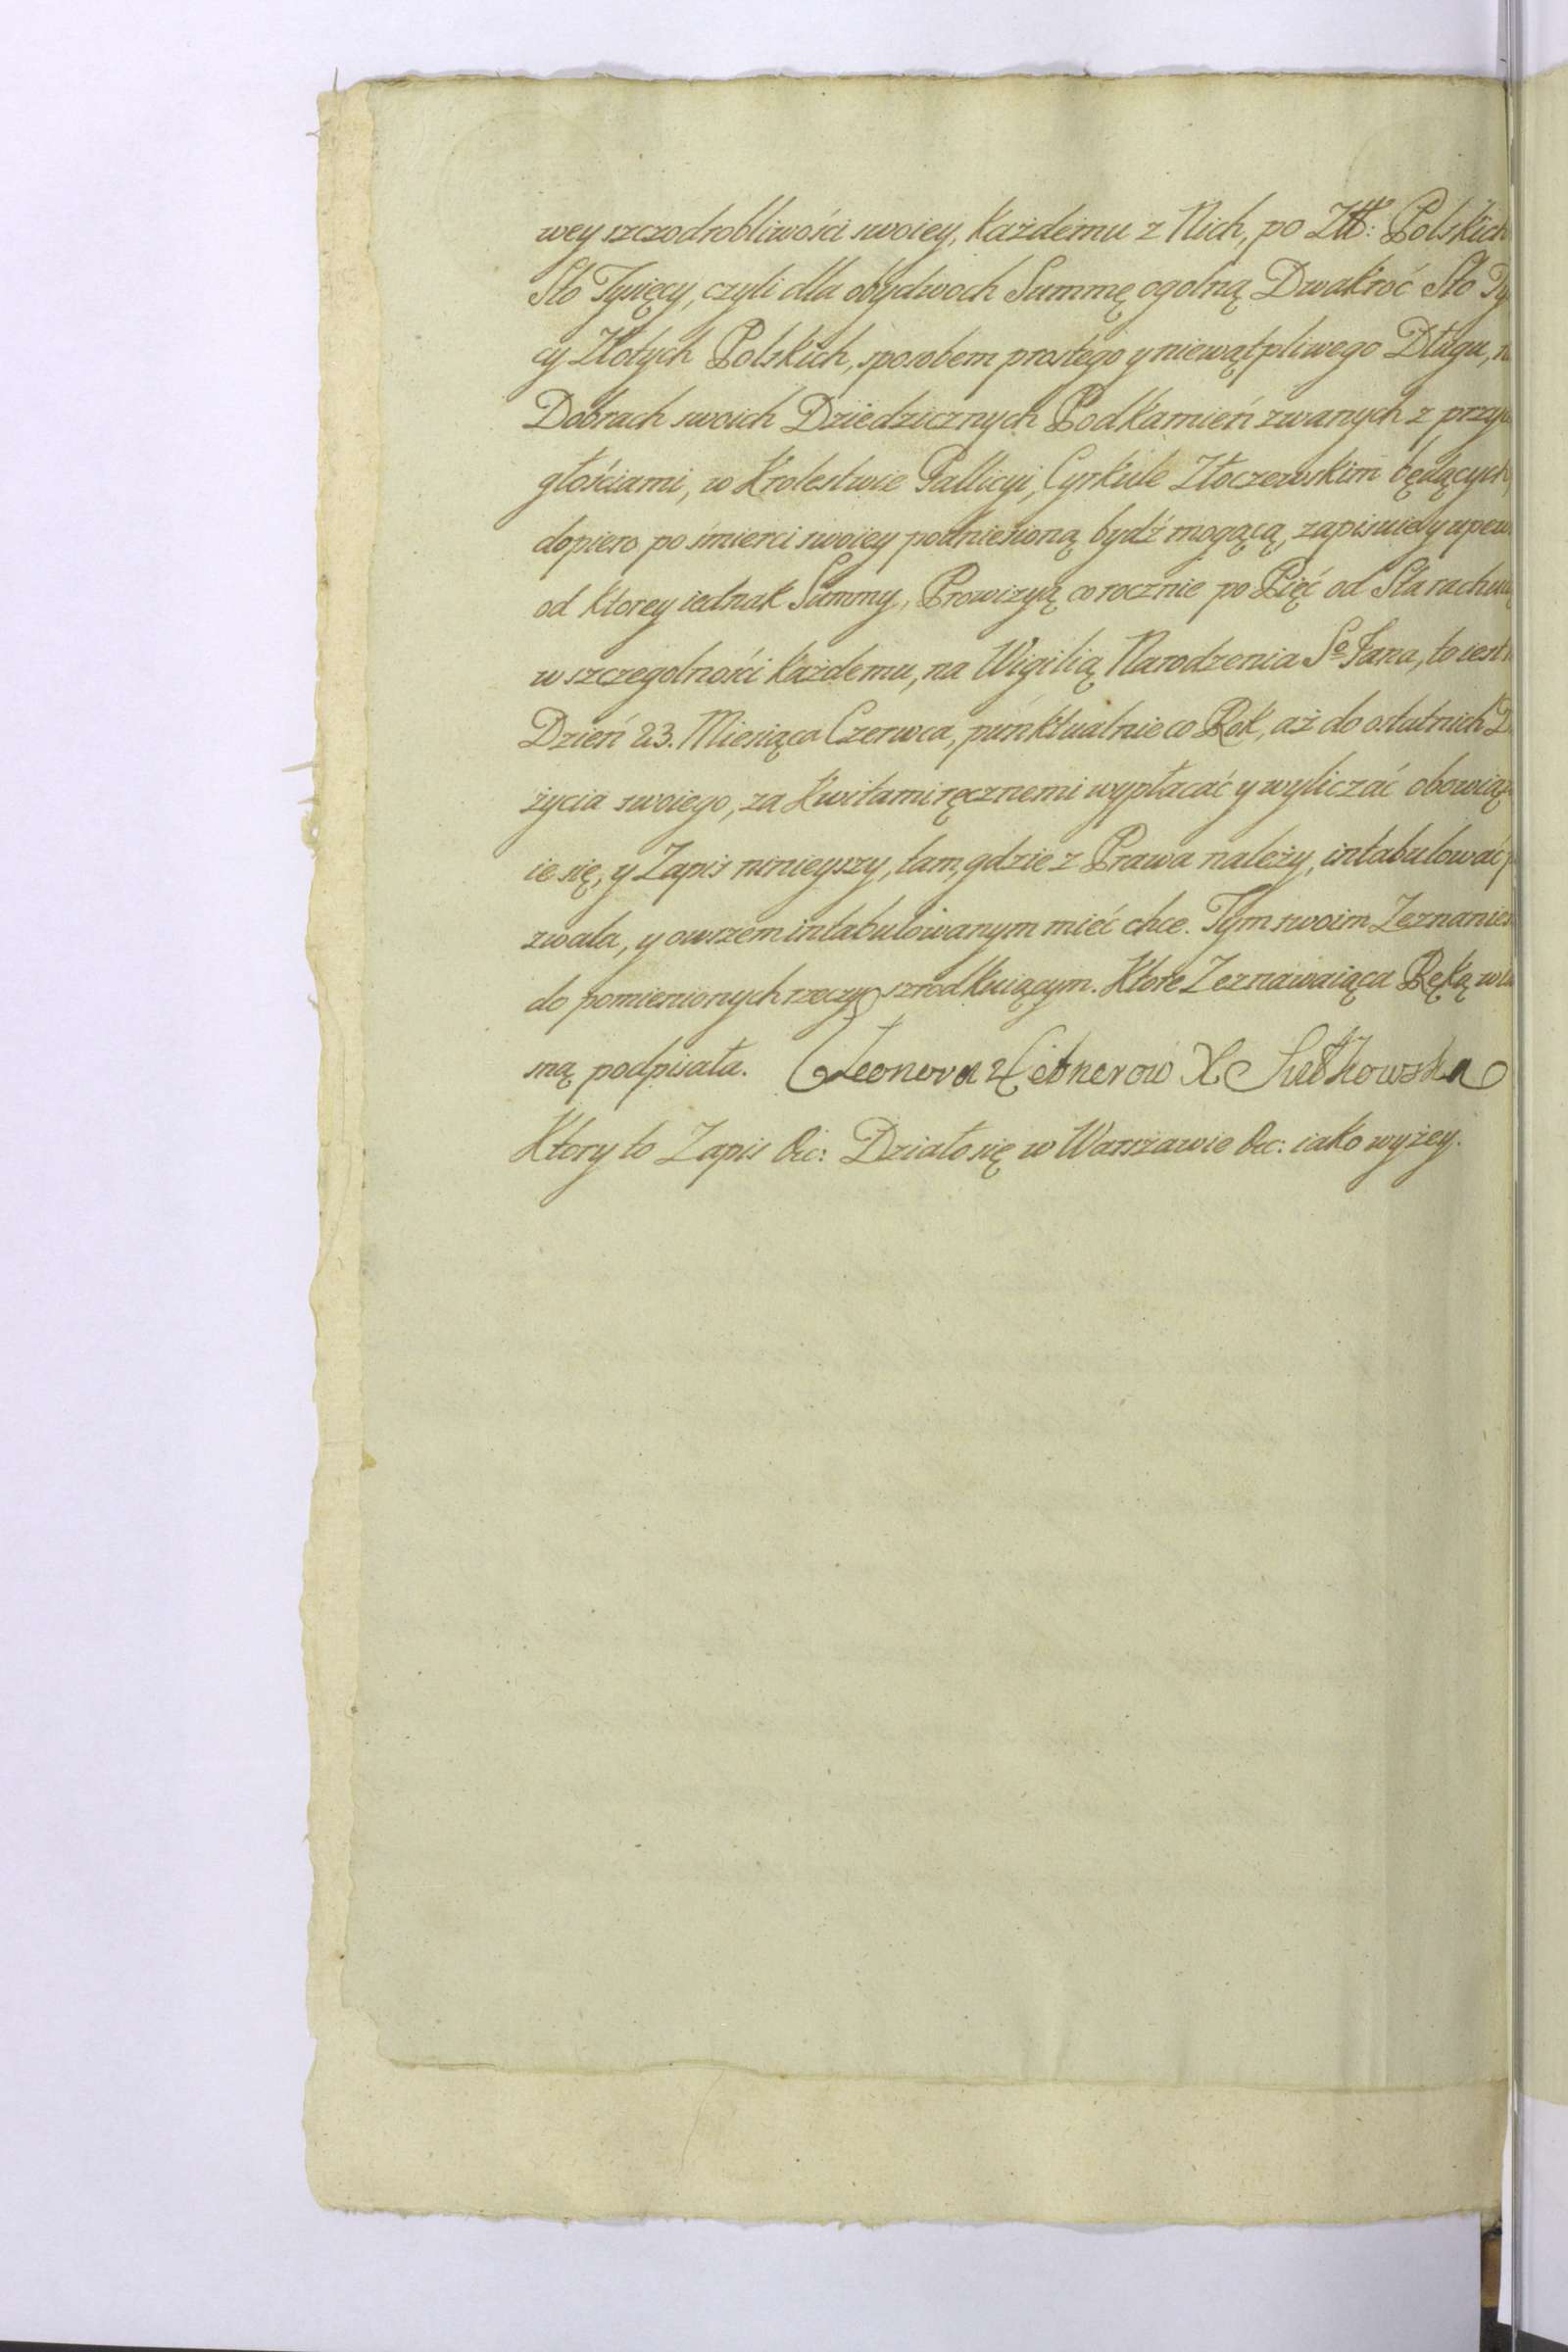 wey szczodrobliwości swoiey, każdemu z Nich, po Złł: Polskich
Sto Tysięcy, czyli dla obydwoch Summę ogolną Dwakroć Sto Ty
cy Złotych Polskich, sposobem prostego y niewątpliwego Długu, n
Dobrach swoich Dziedzicznych Podkamień zwanych z przy
głościami, w Krolestwie Gallicyi, Cyrkule Złoczewskim będących,
dopiero po śmierci swoiey podniesioną bydź mogącą, zapisuie y upew
od ktorey iednak Summy, Prowizyą corocznie po Pięć od Sta rachu
w szczegolności każdemu, na Wigilią Narodzenia So Jana, to iest n
Dzień 23. Miesiąca Czerwca, punktualnie co Rok, aż do ostatnich D
życia swoiego, za Kwitami ręcznemi wypłacać y wyliczać obowiąz
ie się, y Zapis ninieyszy, tam, gdzie z Prawa należy, intabulować p
zwala, y owszem intabulowanym mieć chce. Tym swoim Zeznaniem
do pomienionych rzeczy szrodkuiącym. Ktore Zeznawaiąca Ręką wła
sną podpisała. Leonora X Sułkowska
Ktory to Zapis &c: Działo się w Warszawie &c: iako wyżey.